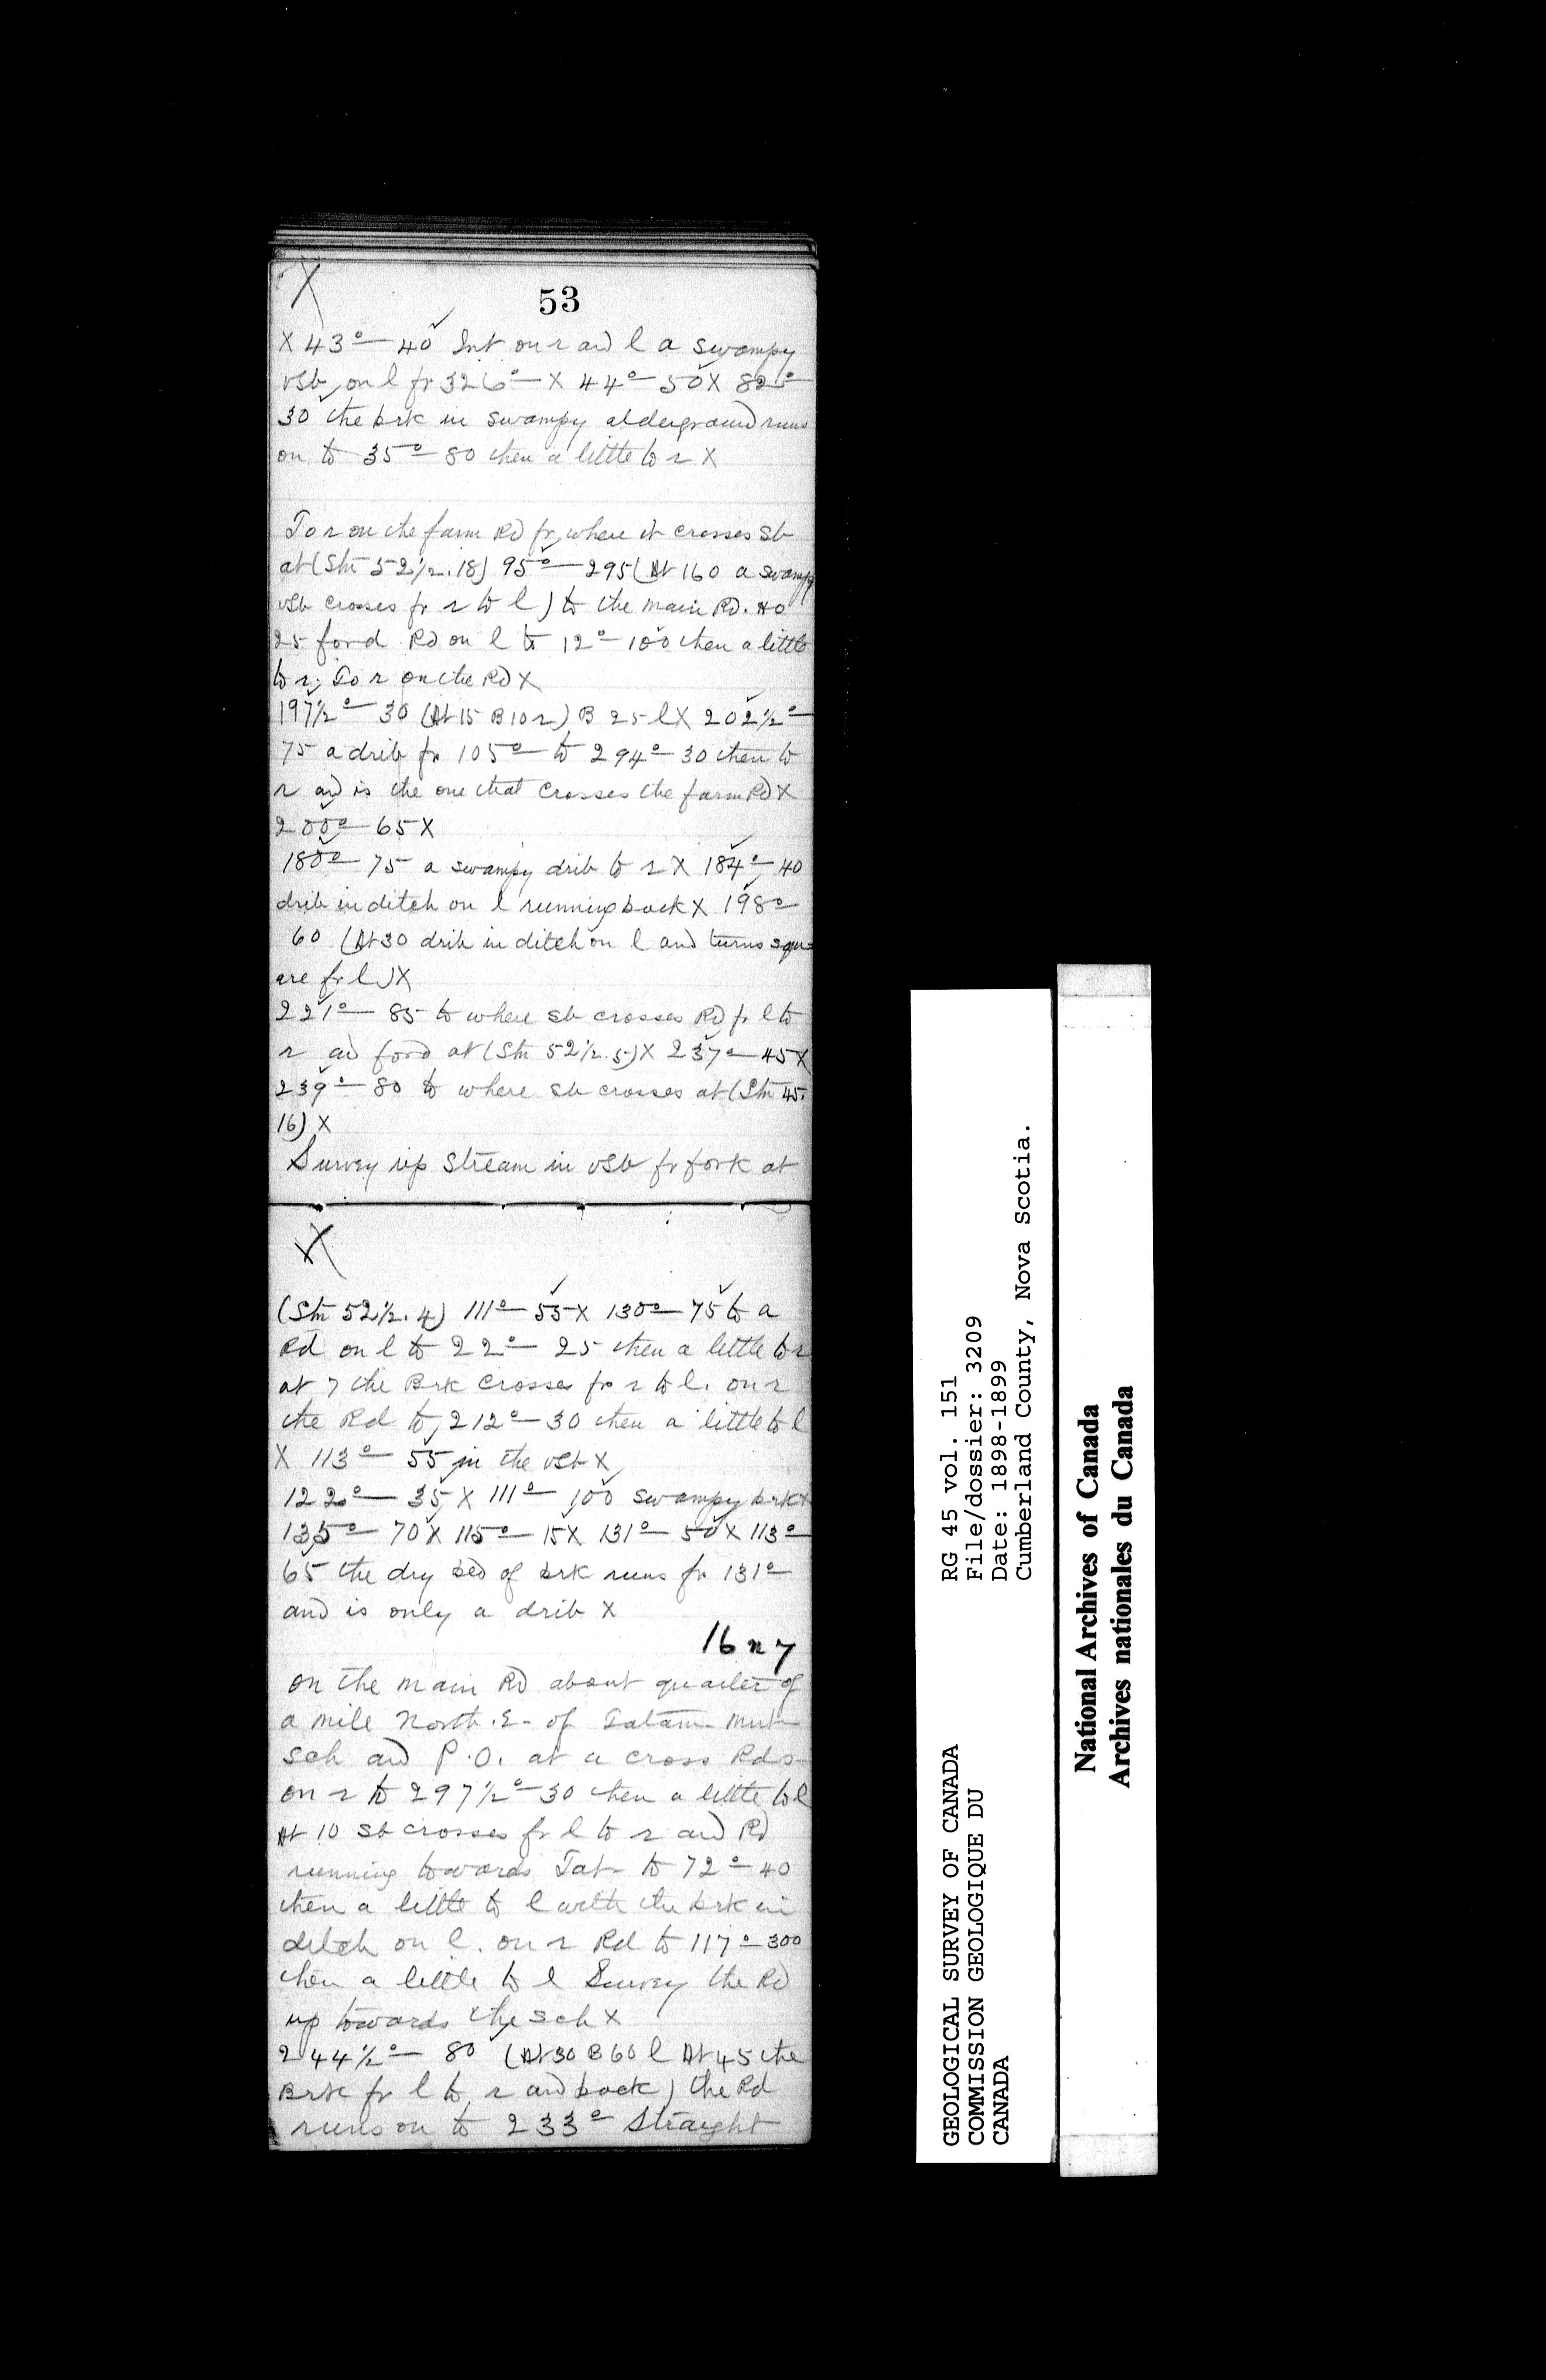 X
53
X 43° — 40 Int on r and l a swampy
vsb, on l fr 326° — X 44° — 50 X 82° —
30 the brk in swampy alderground runs
on to 35° — 80 then a little to r X
To r on the farm Rd fr, where it crosses sb
at (Stn 52½.18) 95° — 295 (At 160 a swampy
vsb crosses fr r to l) to the main Rd. No
25 for d Rd on l to 12° — 100 then a little
to r; To r on the Rd X
197½° — 30 (At 15 B 10 r) B 25 l X 202½° —
75 a drib fr 105° — to 294° — 30 then to
r and is the one that crosses the farm Rd X
200° — 65 X
180° — 75 a swampy drib to r X 184° — 40
drib in ditch on l running back X 198° —
60 (At 30 drib in ditch on l and turns squ=
are fr l) X
221° — 85 to where sb crosses Rd fr l to
r and ford at (Stn 52½.5) X 237° — 45 X
239° — 80 to where sb crosses at (Stn 45.
16) X
Survey up Stream in vsb fr fork at
X
(Stn 52½.4) 111° — 55 X 130° — 75 to a
Rd on l to 22° — 25 then a little to r
at 7 the Brk crosses fr r to l. on r
the Rd to, 212° — 30 then a little to l
X 113° — 55 in the vsb X
122° — 35 X 111° — 100 swampy brk X
135° — 70 X 115° — 15 X 131° — 50 X 113° —
65 the dry bed of brk runs fr 131° —
and is only a drib X
16 n 7
on the main Rd about quarter of
a mile North.E- of Tatam- 
sch and P.O. at a cross Rds-
on r to 297½° — 30 then a little to l
At 10 sb crosses fr l to r and Rd
running towards Tat- to 72° — 40
then a little to l with the brk in
ditch on l. on r Rd to 117° — 300
then a little to l Survey the Rd
up towards the sch X
244½° — 80 (At 30 B 60 l At 45 the
Brk fr l to r and back) the Rd
runs on to 233° Straight
GEOLOGICAL SURVEY OF CANADA
COMMISSION GEOLOGIQUE DU
CANADA
RG 45 vol. 151
File/dossier: 3209
Date: 1898-1899
Cumberland County, Nova Scotia.
National Archives of Canada
Archives nationales du Canada